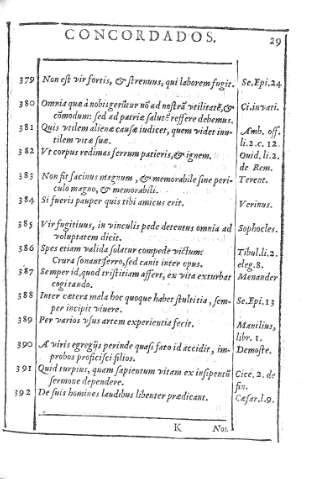 CONCORDADOS. 29
379 Non est vir fortis, & strenuus, qui laborem fugit. Se.Epi.24
380 Omnia quæ à nobis gerũtur nõ ad nostrã vtilitatẽ, &
cõmodum: sed ad patriæ salutẽ referre debemus. Ci.in vati.
381 Quis vtilem alienæ causæ iudicet, quem videt inu-
tilem vitæ suæ. Amb. off.
li.2.c. 12.
382 Vt corpus redimas ferrum patieris, & ignem. Ouid.li.2.
de Rem.
383 Non fit facinus magnum, & memorabile sine peri-
culo magno, & memorabili. Terent.
384 Si fueris pauper quis tibi amicus erit. Verinus.
385 Vir fugitiuus, in vinculis pede detentus omnia ad
voluptatem dicit. Sophocles.
386 Spes etiam valida solatur compede victum:
Crura sonant ferro, sed canit inter opus. Tibul.li.2.
eleg.8.
387 Semper id, quod tristitiam affert, ex vita exturbat
cogitando. Menander
388 Inter cætera mala hoc quoque habet stultitia, sem-
per incipit viuere. Se.Epi.13
389 Per varios vsus artem experientia fecit. Manilius,
libr. 1.
390 A viris egregijs perinde quasi fato id accidit, im-
probos proficisci filios. Demoste.
391 Quid turpius, quam sapientum vitam ex insipentũ
sermone dependere. Cice. 2. de
fin.
392 De suis homines laudibus libenter prædicant. Cæsar.l.9.
K Non